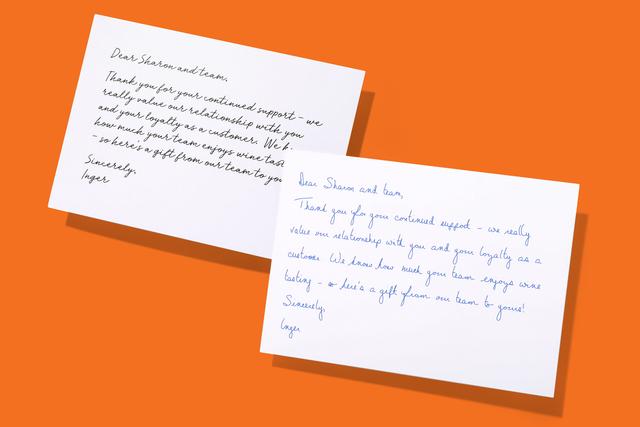 Dear Sharon and team,
Thank you for your continued support – we
really value our relationship with you
and your loyalty as a customer. We
how much your team enjoys wine
– so here's a gift from our team to
Sincerely,
Inger
Dear Sharon and team,
Thank you for your continued support – we really
value our relationship with you and your loyalty as a
customer. We know how much your team enjoys wine
tasting – so here's a gift from our team to yours!
Sincerely,
Inger